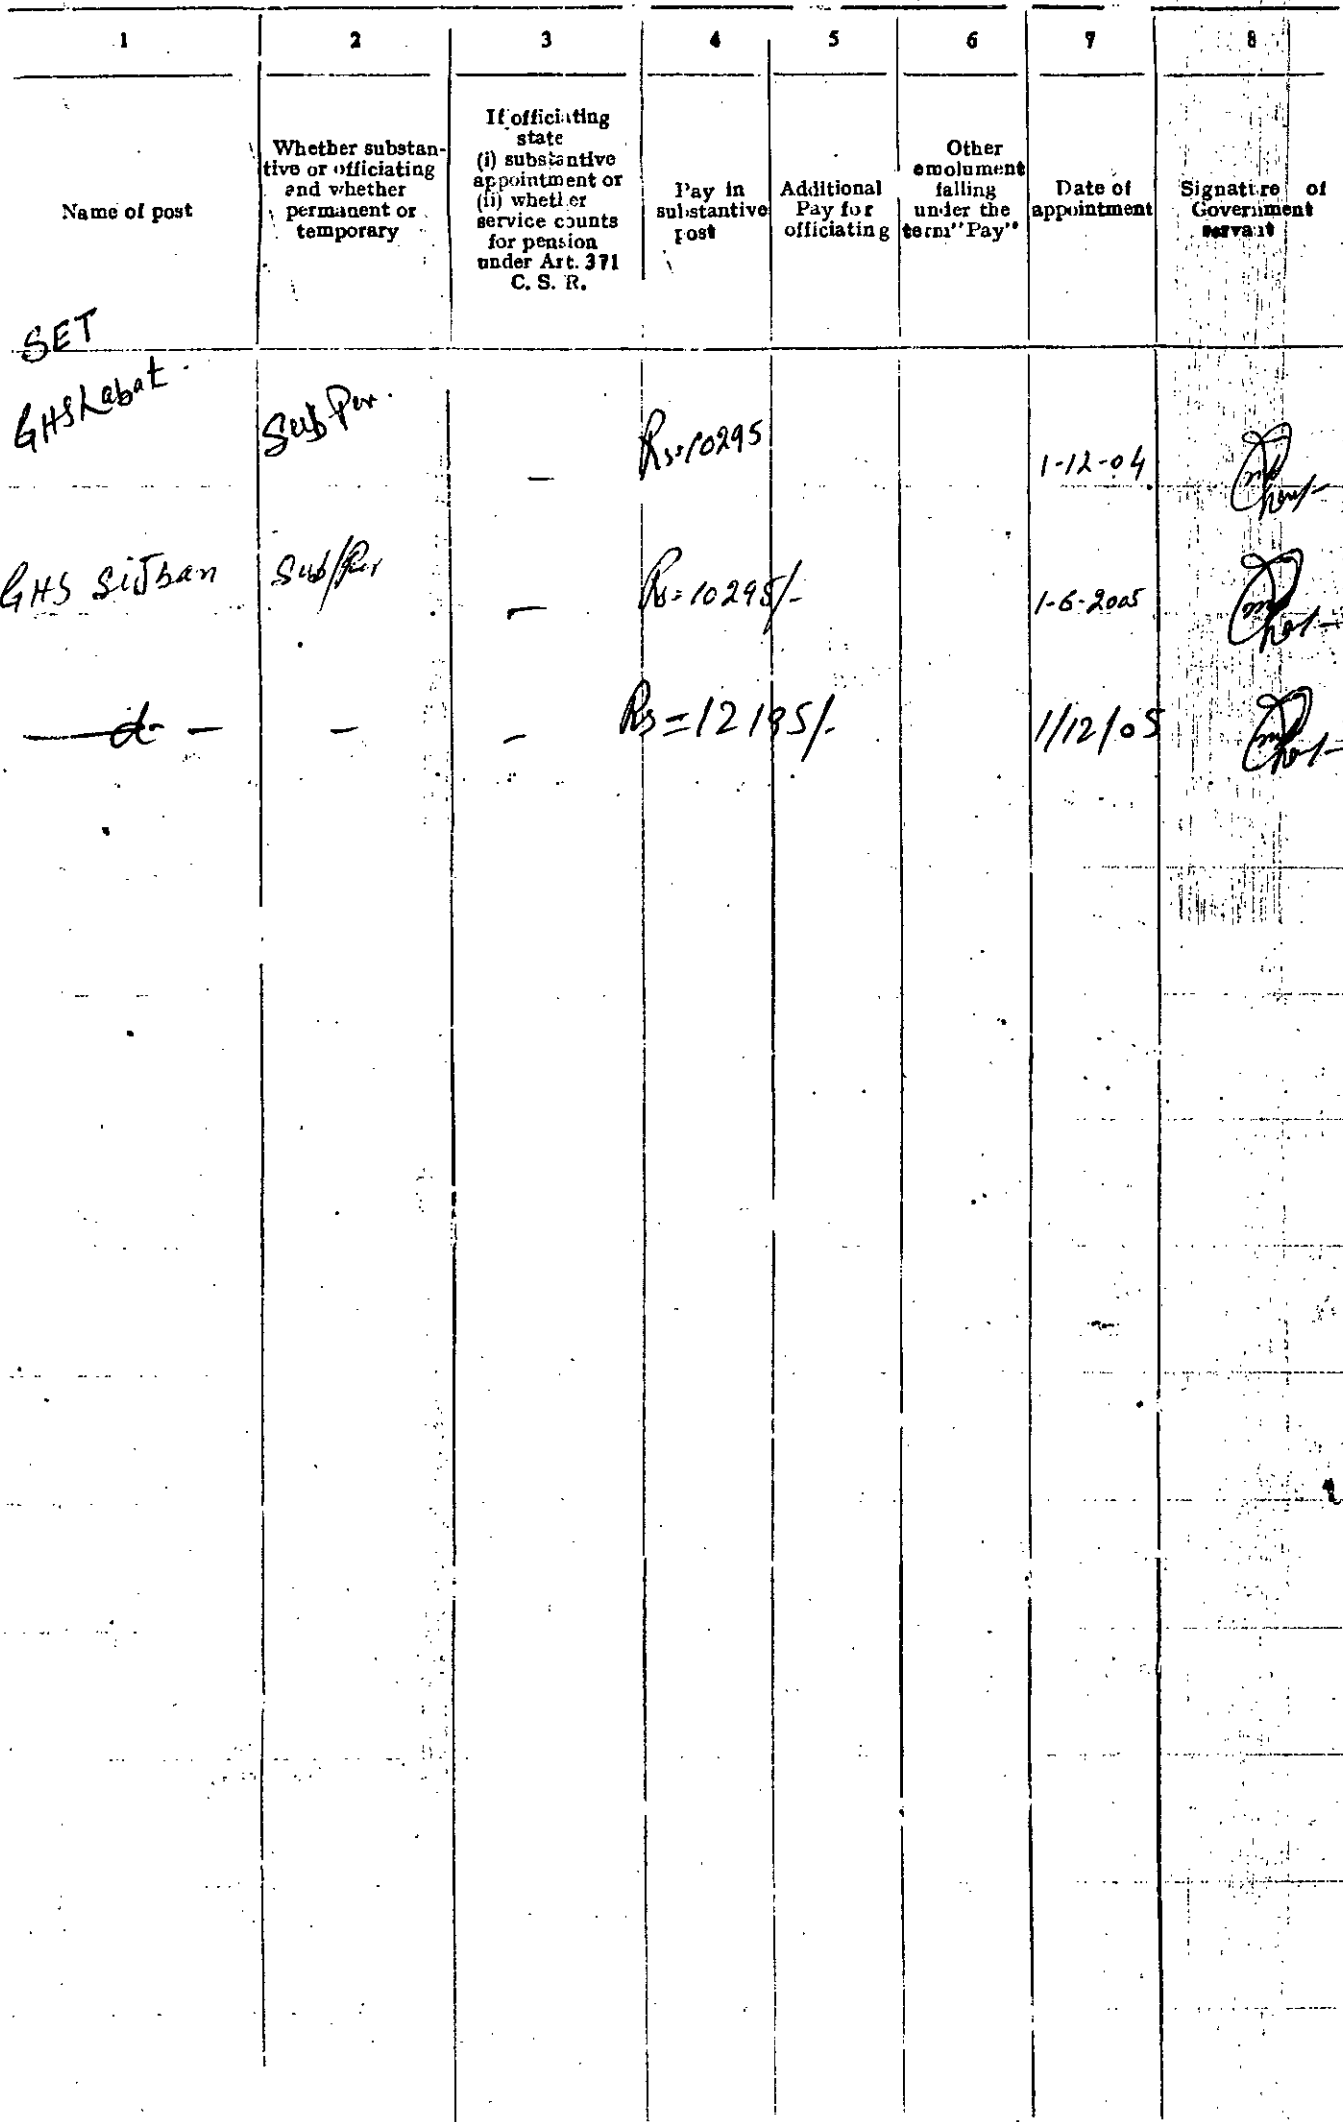 1 2 3 4 5 6 7 8
Name of post
Whether substan-
tive or officiating
and whether
permanent or
temporary
If officiating
state
(i) substantive
appointment or
(ii) whether
service counts
for pension
under Art. 371
C. S. R.
Pay in
substantive
post
Additional
Pay for
officiating
Other
emolument
falling
under the
term "Pay"
Date of
appointment
Signature of
Government
servant
SET
GHS Labat. Sub Per. — Rs=10295 1-12-04
GHS Sijban Sub/Per — Rs=10295/- 1-6-2005
— — — Rs=12195/- 1/12/05